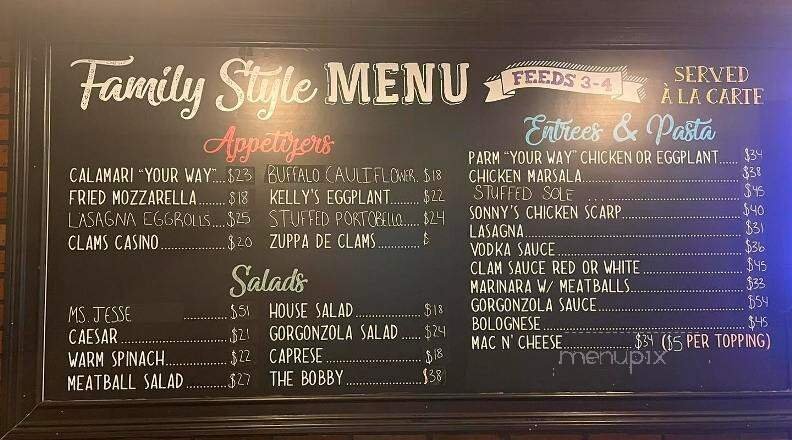 Family Style MENU
FEEDS 3-4
SERVED
À LA CARTE
Appetizers
CALAMARI "YOUR WAY"....$23
FRIED MOZZARELLA........$18
LASAGNA EGGROLLS....$25
CLAMS CASINO..............$20
BUFFALO CAULIFLOWER. $18
KELLY'S EGGPLANT........$22
STUFFED PORTOBELLO.....$24
ZUPPA DE CLAMS..........$
Salads
MS. JESSE ..........$51
CAESAR......................$21
WARM SPINACH.............$22
MEATBALL SALAD..........$27
HOUSE SALAD..............$18
GORGONZOLA SALAD.....$24
CAPRESE....................$18
THE BOBBY.................$38
Entrees & Pasta
PARM "YOUR WAY" CHICKEN OR EGGPLANT..... $34
CHICKEN MARSALA.................................$38
STUFFED SOLE ....................................$45
SONNY'S CHICKEN SCARP..........................$40
LASAGNA..........................................$31
VODKA SAUCE......................................$36
CLAM SAUCE RED OR WHITE........................$45
MARINARA W/ MEATBALLS..........................$33
GORGONZOLA SAUCE...............................$54
BOLOGNESE........................................$45
MAC N' CHEESE....................$34 ($5 PER TOPPING)
menupix